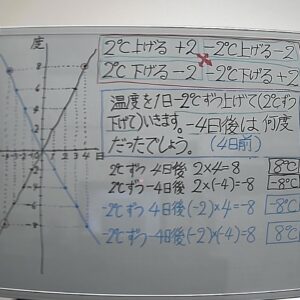 度
2℃上げる+2
-2℃上げる-2
2℃下げる-2
-2℃下げる+2
温度を1日-2℃ずつ上げて(2℃ずつ
下げて)いきます。-4日後は何度
だったでしょう。(4日前)
2℃ずつ 4日後 2×4=8 8℃
2℃ずつ-4日後 2×(-4)=-8 -8℃
-2℃ずつ 4日後(-2)×4=-8 -8℃
-2℃ずつ-4日後(-2)×(-4)=8 8℃
8
6
4
2
日